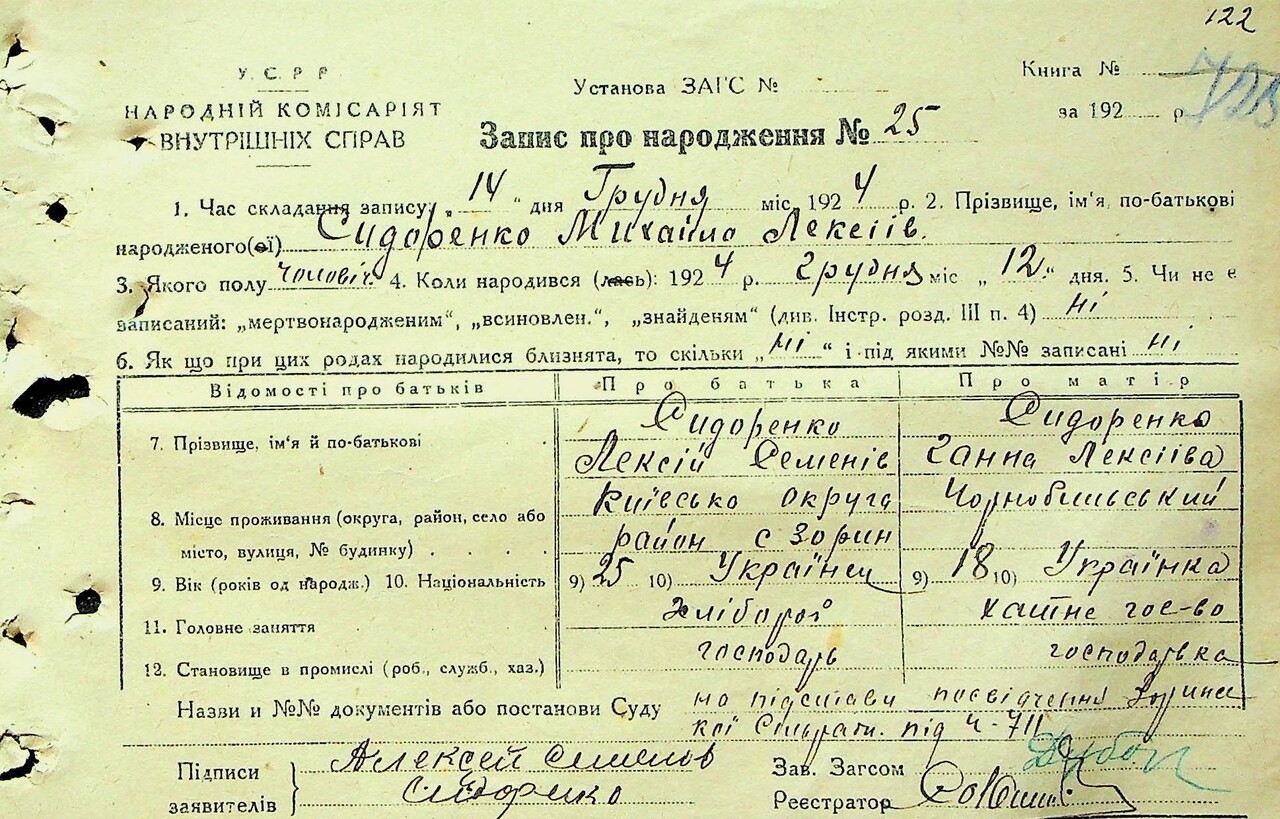 122
У.С.Р.Р.
НАРОДНІЙ КОМІСАРІЯТ
ВНУТРІШНІХ СПРАВ
Установа ЗАГС №
Книга №
за 192 р.
Запис про народження № 25
1. Час складання запису: „ 14 “ дня Грудня міс. 1924 р. 2. Прізвище, ім'я, по-батькові
народженого(ої) Сидоренко Михайло Лексіів.
3. Якого полу чоловіч. 4. Коли народився (лась): 1924 р. Грудня міс „ 12 “ дня. 5. Чи не є
записаний: „мертвонародженим“, „всиновлен.“, „знайденям“ (див. Інстр. розд. III п. 4) ні
6. Як що при цих родах народилися близнята, то скільки „ ні “ і під якими №№ записані ні
Відомості про батьків Про батька Про матір
7. Прізвище, ім'я й по-батькові Сидоренко Сидоренко
Лексій Семенів Ганна Лексіїва
8. Місце проживання (округа, район, село або Київсько округа Чорнобильський
місто, вулиця, № будинку) район с Зорин
9. Вік (років од народж.) 10. Національність 9) 25 10) Українец 9) 18 10) Українка
11. Головне заняття хлібороб хатне гос-во
12. Становище в промислі (роб., служб., хаз.) господарь господарька
Назви и №№ документів або постанови Суду на підстави посвідчення Зорине
кої Сільрати. під Ч-711
Підписи
заявителів
Алексей Семенов
Сидоренко
Зав. Загсом
Реєстратор